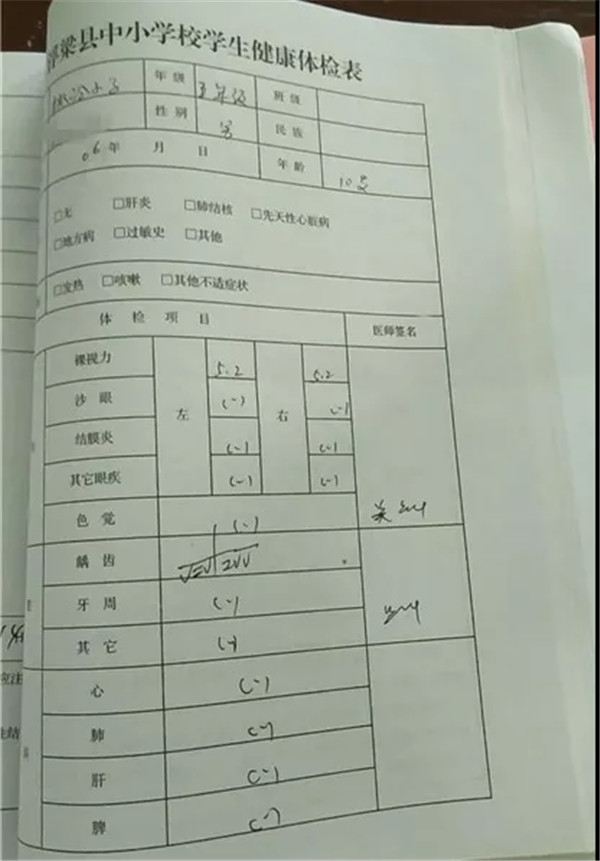 浮梁县中小学校学生健康体检表
年级 五年级 班级
性别 男 民族
06年 月 日 年龄 10岁
□无 □肝炎 □肺结核 □先天性心脏病
□地方病 □过敏史 □其他
□发热 □咳嗽 □其他不适症状
体检项目 医师签名
裸视力 左 5.2 右 5.2
沙眼 (-) (-)
结膜炎 (-) (-)
其它眼疾 (-) (-)
色觉 (-)
龋齿
牙周 (-)
其它 (-)
心 (-)
肺 (-)
肝 (-)
脾 (-)